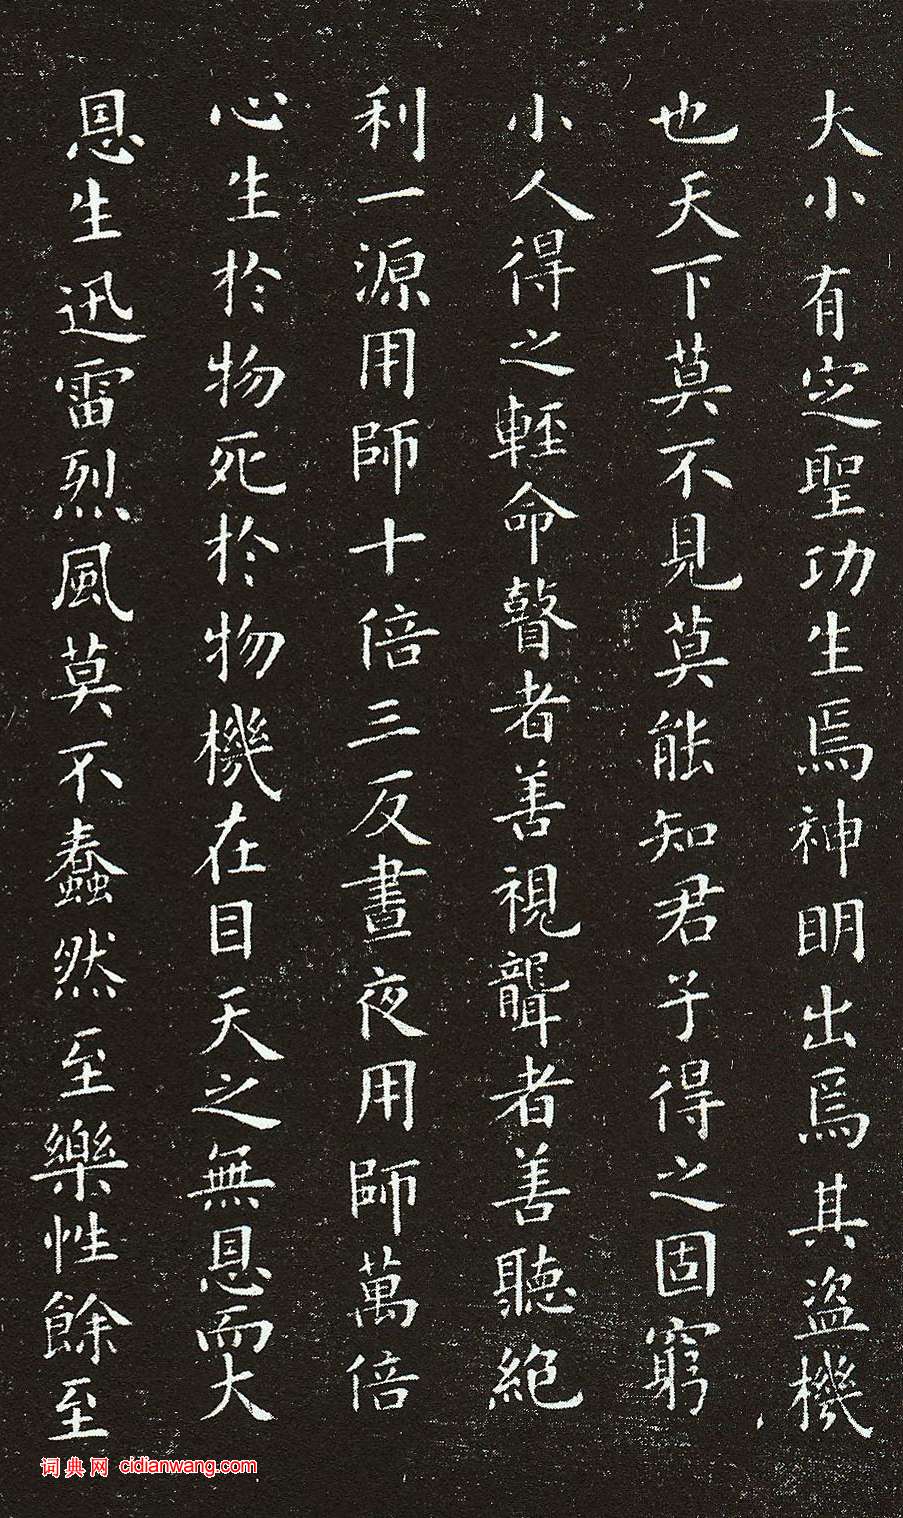 大小有定聖功生焉神明出焉其盜機
也天下莫不見莫能知君子得之固窮
小人得之輕命瞽者善視聾者善聽絶
利一源用師十倍三反晝夜用師萬倍
心生於物死於物機在目天之無恩而大
恩生迅雷烈風莫不蠢然至樂性餘至
词典网 cidianwang.com